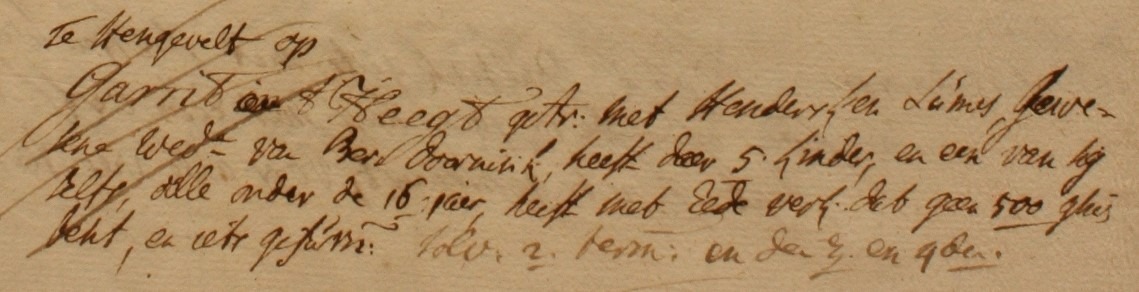 Te Hengevelt op
Garrit in 't Heegt getr: met Hendersken Lumes, gewe=
sene wed: van Ber: Doornink, heeft daer 5 kinder, en een van sig
selfs, alle onder de 16 jaer, heeft met Eede verk: dat geen 500 glns
besit, en iets
solv. 2. term: en den 3. en 4den.